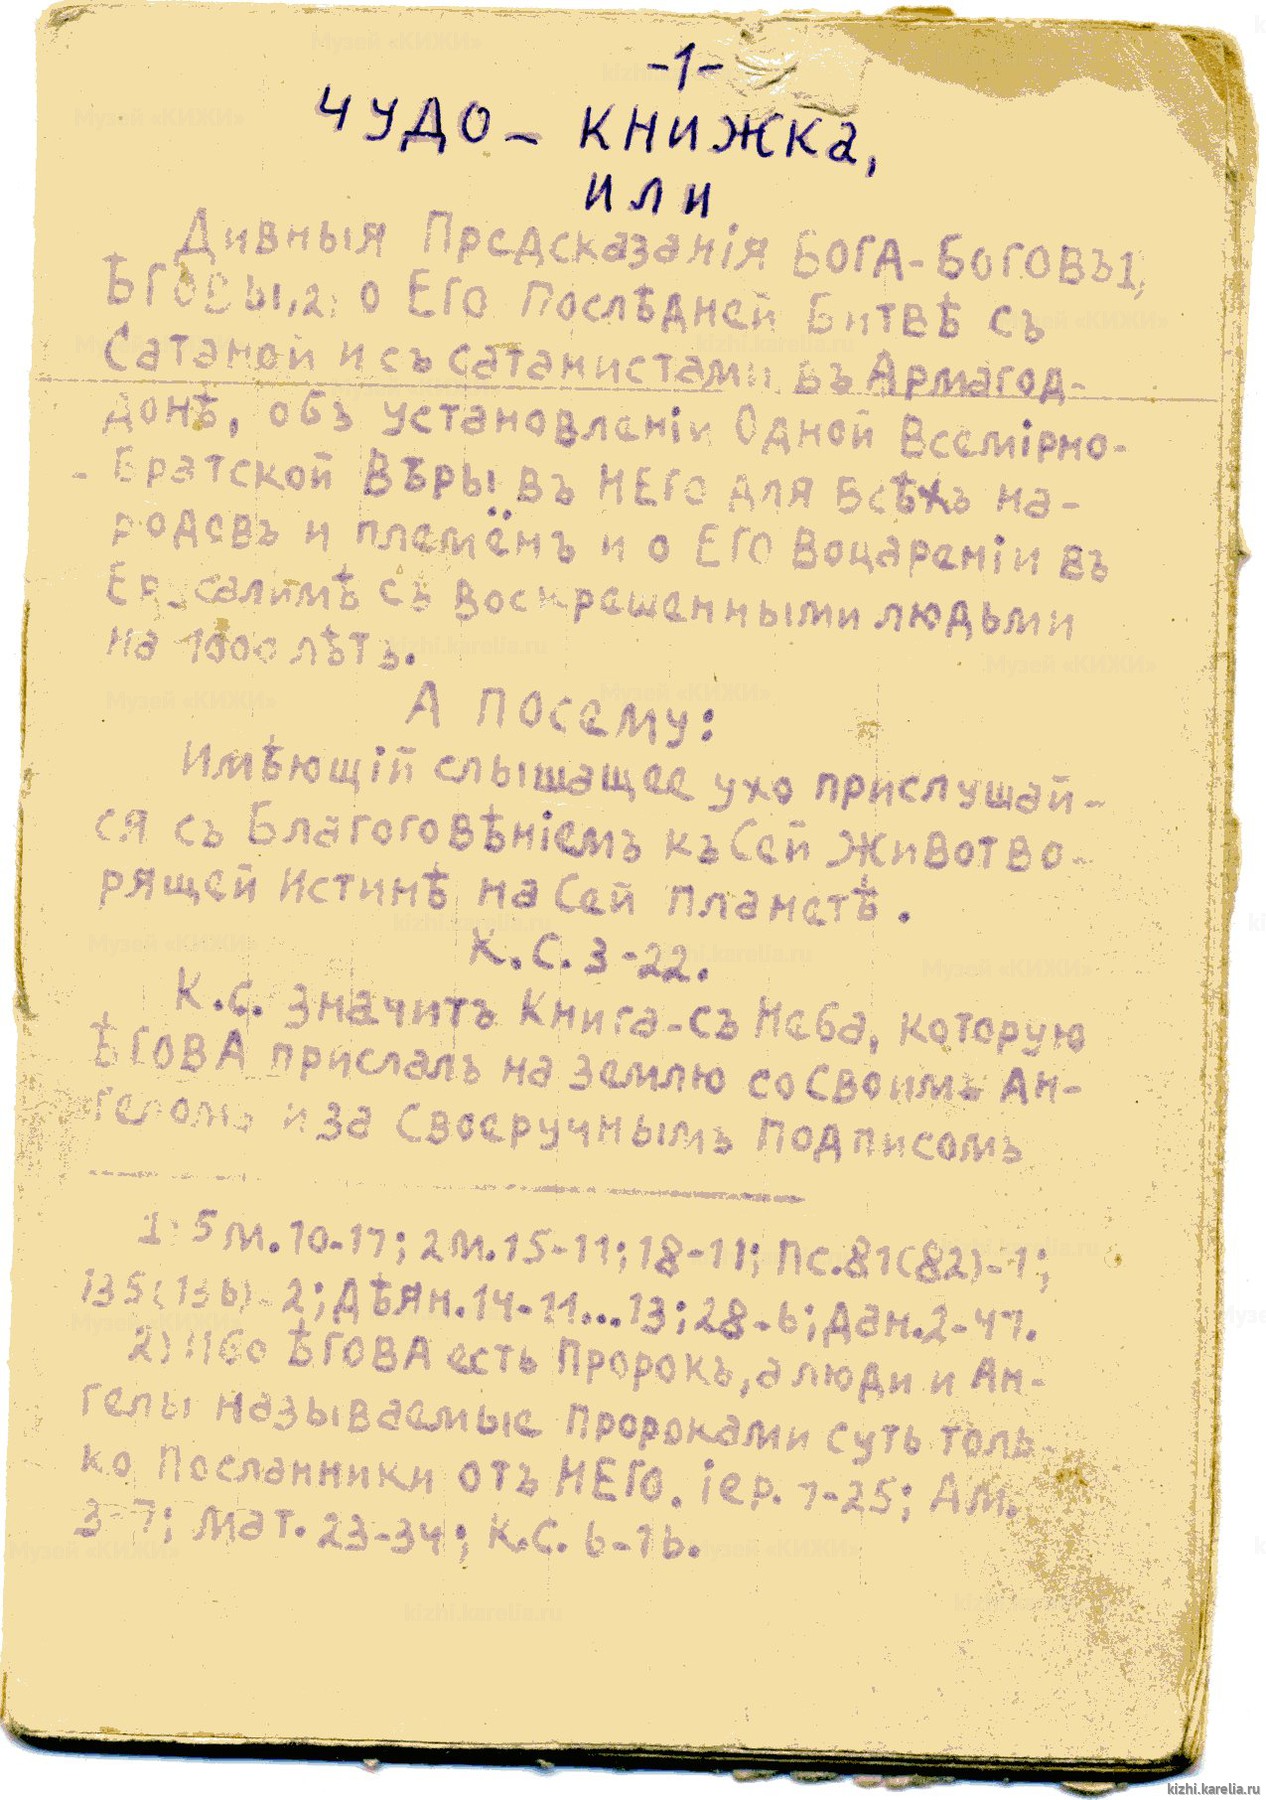 -1-
ЧУДО - КНИЖКА,
ИЛИ
Дивныя Предсказанія БОГА-БОГОВЪ1,
ѢГОВЫ,2) о ЕГО Послѣдней Битвѣ съ
Сатаной и съ сатанистами въ Армагод-
донѣ, объ установленіи Одной Всемірно-
-Братской Вѣры въ НЕГО для всѣхъ на-
родовъ и племёнъ и о ЕГО Воцареніи въ
Ерусалимѣ съ воскрешенными людьми
на 1000 лѣтъ.
А посему:
Имѣющій слышащее ухо прислушай-
ся съ Благоговѣніемъ къ Сей Животво-
рящей Истинѣ на Сей Планетѣ.
К.С. 3-22.
К.С. значитъ Книга-съ Неба, которую
ѢГОВА прислалъ на Землю со Своимъ Ан-
геломъ и за Своеручнымъ Подписомъ
1) 5 М. 10-17; 2 М. 15-11; 18-11; Пс. 81(82)-1;
135(136)-2; Дѣян. 14-11...13; 28-6; Дан. 2-47.
2) Ибо ѢГОВА есть Пророкъ, а люди и Ан-
гелы называемые Пророками суть толь-
ко Посланники отъ НЕГО. Іер. 7-25; Ам.
3-7; Мат. 23-34; К.С. 6-16.
Музей «КИЖИ»
kizhi.karelia.ru
kizhi.karelia.ru